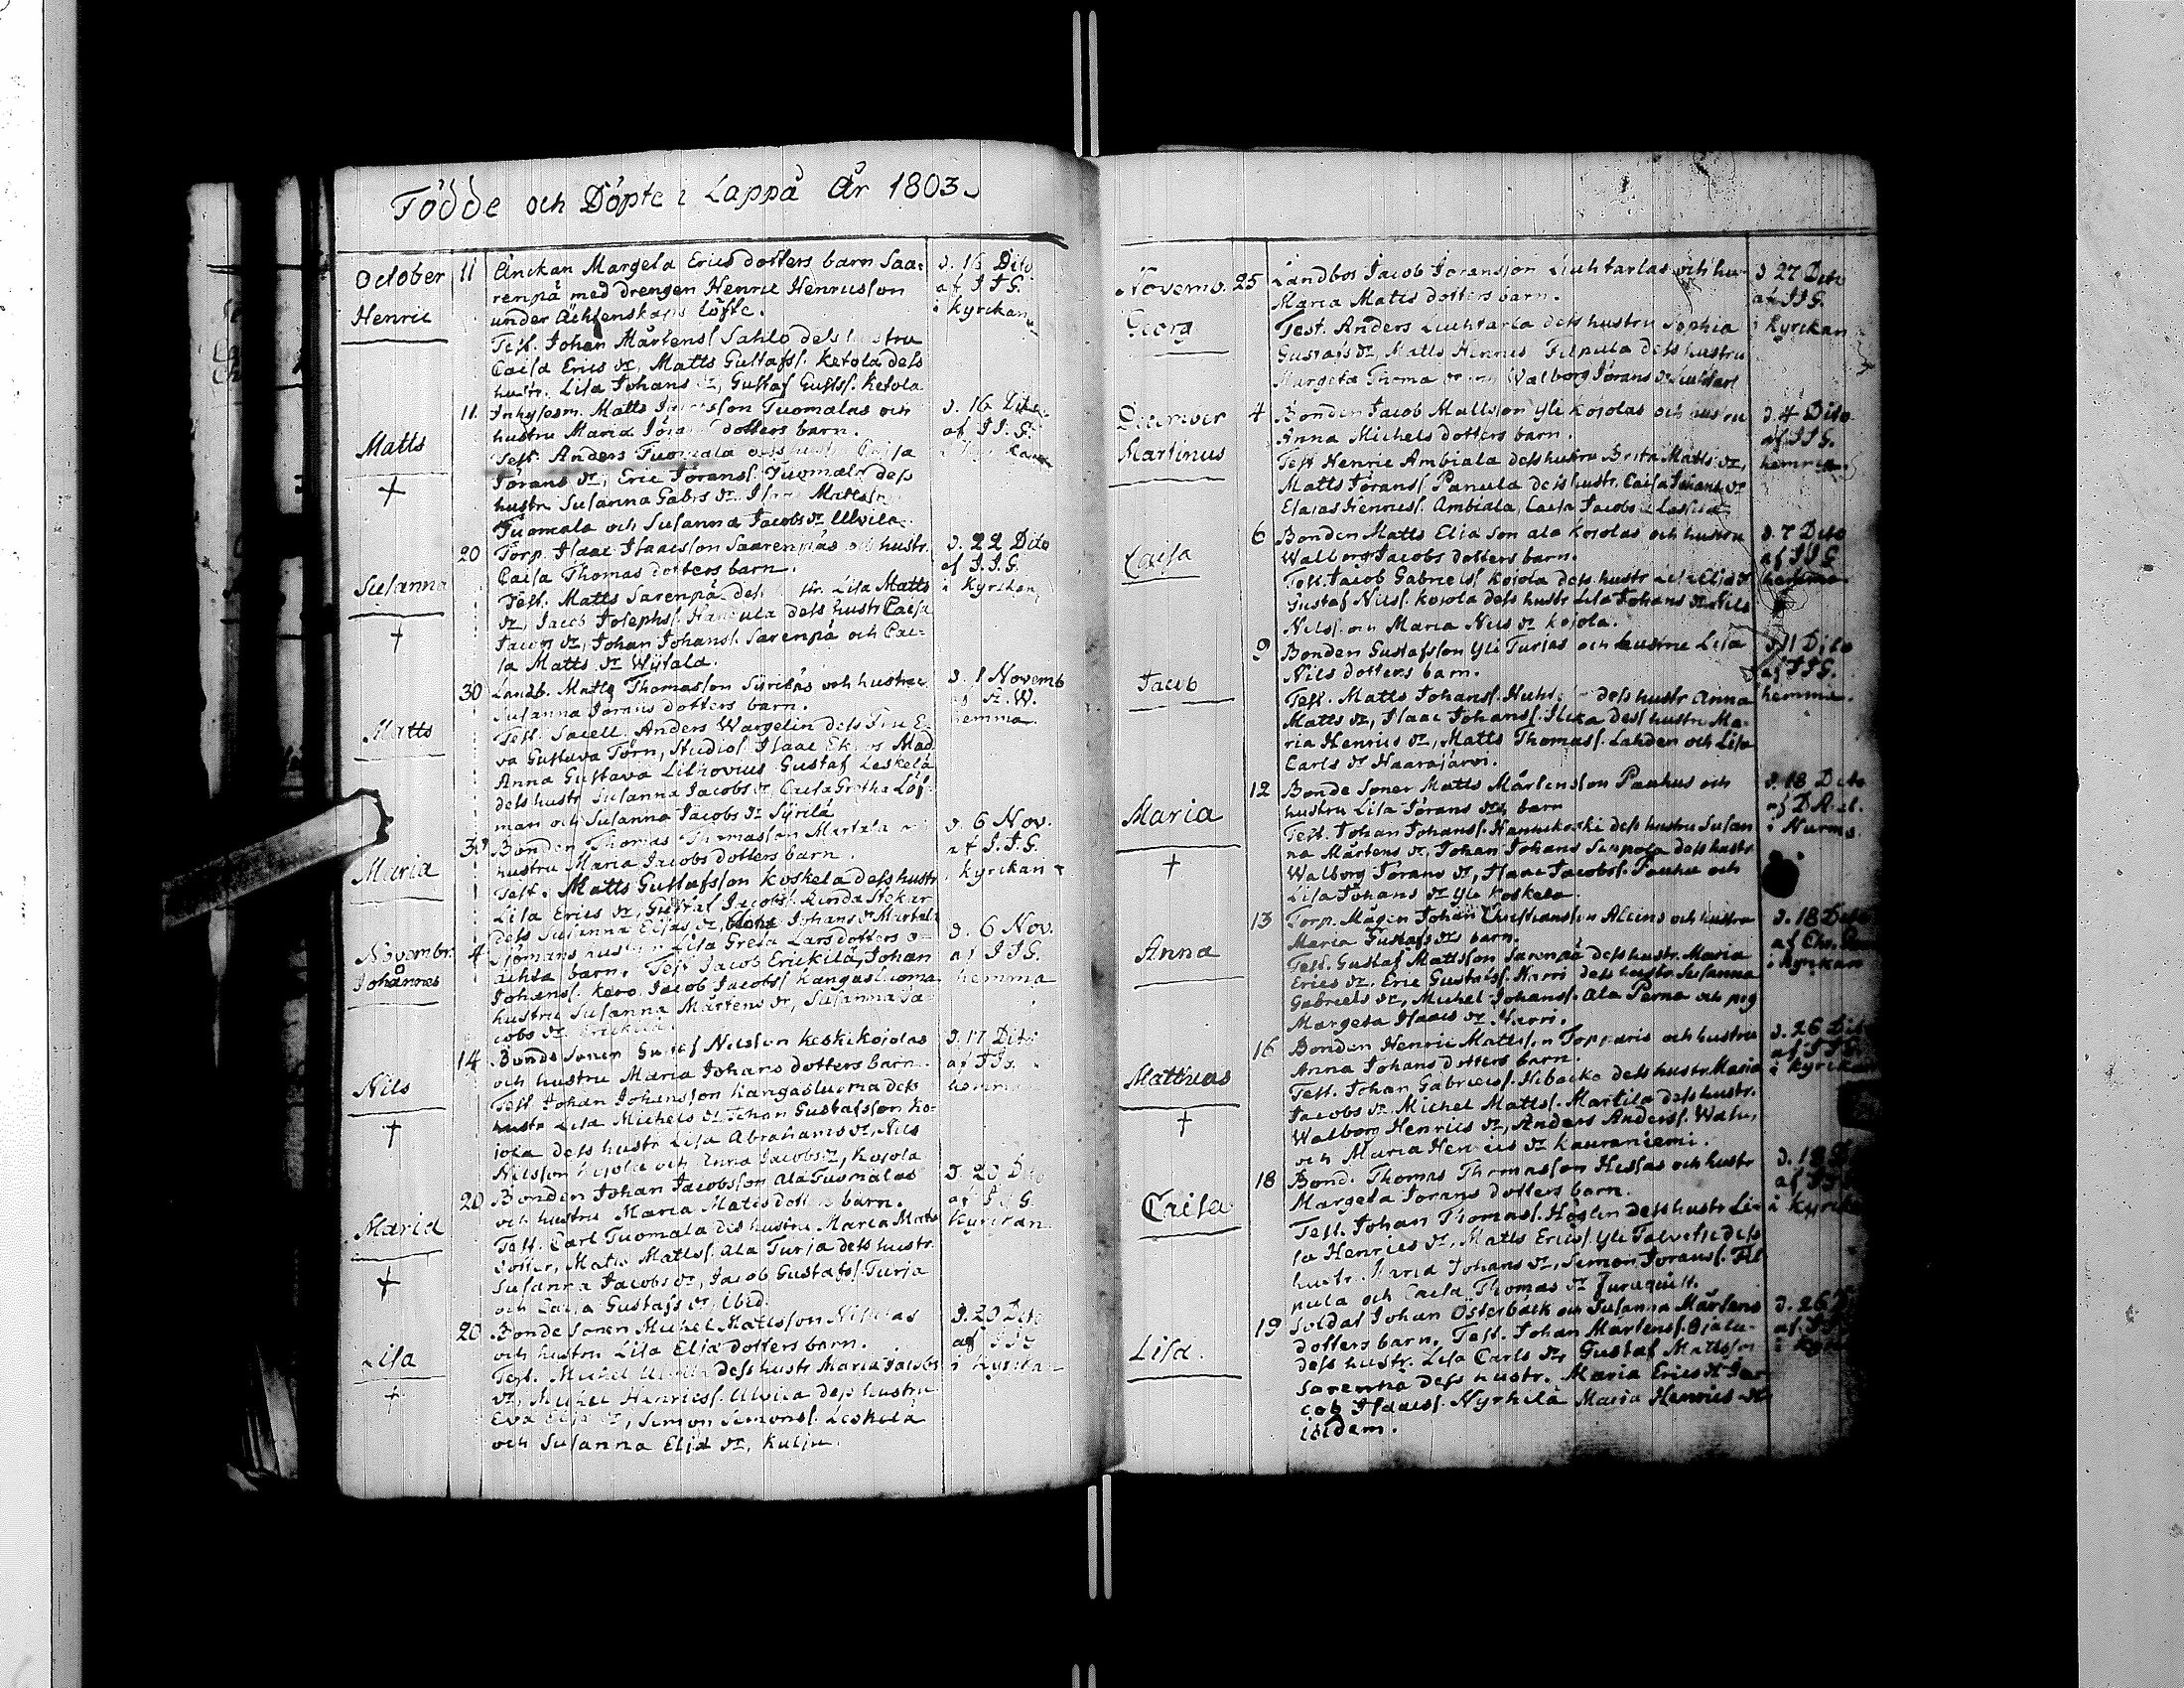 Födde och Döpte i Lappå År 1803.
October 11 Enckan Margeta Erics dotters barn Saa-
renpä med drengen Henric Henricsson
under Ächtenskaps löfte.
Henric
Test. Johan Mårtenss. Sahlo dess hustru
Caisa Erics dr, Matts Gustafss. Ketola dess
hustr. Lisa Johans dr, Gustaf Gustfs. Ketola
d. 16 Dito
af J I G.
i Kyrckan
11 Inhysesm. Matts Tuomalas och
hustru Maria dotters barn.
Matts
Test. Anders Tuomala Caisa
Jörans dr, Eric Jöranss. Tuomala dess
hustr. Susanna Gabrs dr. Matts
Tuomala och Susanna Jacobs dr Ulvila.
d. 16 Dito
af J I. G.
20 Torp. Isaac Isaacsson Saarenpäs och hustr.
Caisa Thomas dotters barn.
Susanna
Test. Matts Sarenpä Lisa Matts
dr, Jacob Josephs. dess hustr Caisa
Jacobs dr, Johan Johanss. Sarenpä och Cai-
sa Matts dr Wijtala.
d. 22 Dito
af J. I. G.
i Kyrckan
30 Landb. Matts Thomasson Syriläs och hustru
Susanna Jörans dotters barn.
Matts
Test. Sacell. Anders Wargelin dess Fru E-
va Gustava Törn, Studios. Isaac Mad.
Anna Gustava Lithovius Gustaf Leskelä
dess hustr Susanna Jacobs dr, Caisa Gretha Löf-
man och Susanna Jacobs dr Syrilä
d. 1 Novemb
af A. W.
hemma
30 Bonden Thomas Thomasson
hustru Maria Jacobs dotters barn.
Maria
Test. Matts Gustafsson Koskela dess hustr
Lisa Erics dr, Gustaf Jacobs.
dess Susanna Elias dr, Johans dr
d. 6 Nov.
af J. I. G.
i kyrckan
Novembr. 4 Sjömans hustrun Lisa Greta Lars dotters o-
Johannes
ächta barn. Test Jacob Erickilä, Johan
Johanss. Kero, Jacob Jacobs. Kangasluoma
hustru Susanna Mårtens dr, Susanna Ja-
cobs dr Erickilä.
d. 6 Nov.
af J I G.
hemma
14 Bonde Sonen Gustaf Nilsson Keskikojolas
och hustru Maria Johans dotters barn.
Nils
Test Johan Johansson Kangasluoma dess
hustr Lisa Michels dr Johan Gustafsson Ko-
jola dess hustr Lisa Abrahams dr, Nils
Nilsson Kojola och Anna Jacobs dr, Kojola
d. 17 Dito
af J I G.
hemma
20 Bonden Johan Jacobsson Ala Tuomalas
och hustru Maria Matts dotters barn.
Maria
Test. Carl Tuomala dess hustru Maria Matts
dotter, Matts Mattss. Ala Turja dess hustr
Susanna Jacobs dr, Jacob Gustafs. Turja
och Caisa Gustafs dr, ibid.
d 20 Dito
af J I G
Kyrckan
20 Bonde Sonen Michel Mattsson
och hustru Lisa Elia dotters barn.
Lisa
Test. Michel dess hustr Maria Jacobs
dr, Michel Henricss. Ulvila dess hustru
Eva Elia dr, Simon Simons. Leskelä
och Susanna Elia dr, Kulju.
d. 20 Dito
af J I G
i Kyrcka
Novemb. 25 Landbos Jacob Jöransson Luuhtarlas och hu-
Maria Matts dotters barn.
Georg
Test. Anders Luuhtarla dess hustru Sophia
Gustafs dr, Matts Henrics Filpula dess hustru
Margeta Thoma dr Walborg Jörans dr
d 27 Dito
af J I G.
i Kyrckan
December 4 Bonden Jacob Mattsson Yli Kojolas och hustru
Anna Michels dotters barn.
Martinus
Test Henric Ambiala dess hustru Brita Matts dr,
Matts Jöranss. Panula dess hustr. Caisa Johans dr
Esaias Henrics. Ambiala, Caisa Jacobs
d. 4 Dito
af J I G.
hemma
6 Bonden Matts Elia Son ala Kojolas och hustru
Walborg Jacobs dotters barn.
Caisa
Test. Jacob Gabriels. Kojola dess hustr Lisa Elia dr
Gustaf Nilss. Kojola dess hustr Lisa Johans dr Nils
Nilss. och Maria Nils dr Kojola.
d. 7 Dito
af J I G
hemma
9 Bonden Gustafsson Yli Turjas och hustru Lisa
Nils dotters barn.
Jacob
Test. Matts Johanss. dess hustr Anna
Matts dr, Isaac Johanss. dess hustru Ma-
ria Henrics dr, Matts Thomass. Lahden och Lisa
Carls dr Haarajärvi.
d 11 Dito
af J I G.
hemma.
12 Bonde Sonen Matts Mårtensson Pauhus och
hustru Lisa Jörans drs barn
Maria
Test. Johan Johanss. dess hustru Susan
na Mårtens dr, Johan Johans dess hustr
Walborg Jörans dr, Isaac Jacobss. Pauhu och
Lisa Johans dr Yli Koskela
d. 18 Dito
i Nurmo.
13 Torp. Mågen Johan Christiansson och hustru
Maria Gustafs drs barn.
Anna
Test. Gustaf Mattsson Sarenpä dess hustr. Maria
Erics dr. Eric Gustafss. Harri dess hustr. Susanna
Gabriels dr, Michel Johanss. Ala Perna och pig
Margeta Isaacs dr Harri.
d. 18 Dito
i Kyrckan
16 Bonden Henric Mattsson Topparis och hustru
Anna Johans dotters barn.
Matthias
Test. Johan Gabriels. dess hustr Maria
Jacobs dr. Michel Mattss. Martila dess hustr.
Walborg Henrics dr, Anders Anderss.
och Maria Henrics dr Kauraniemi.
d. 26 Dit
i Kyrcka
18 Bond. Thomas Thomasson Hissas och hustr
Margeta Jörans dotters barn.
Caisa
Test. Johan Thomass. Höglin dess hustr Li-
sa Henrics dr, Matts Ericss. Yli Talvitie dess
hustr. Maria Johans dr, Simon Jöranss. Fil
pula och Caisa Thomas dr Furuquist.
i Kyrcka
19 Soldat Johan Österback och Susanna Mårtens
dotters barn. Test. Johan Mårtenss. Ojala-
Lisa.
dess hustr. Lisa Carls dr, Gustaf Mattsson
Sarenpä dess hustr. Maria Erics dr Ja-
cob Isaacss. Nyrhilä Maria Henrics dr
ibidem.
d. 26